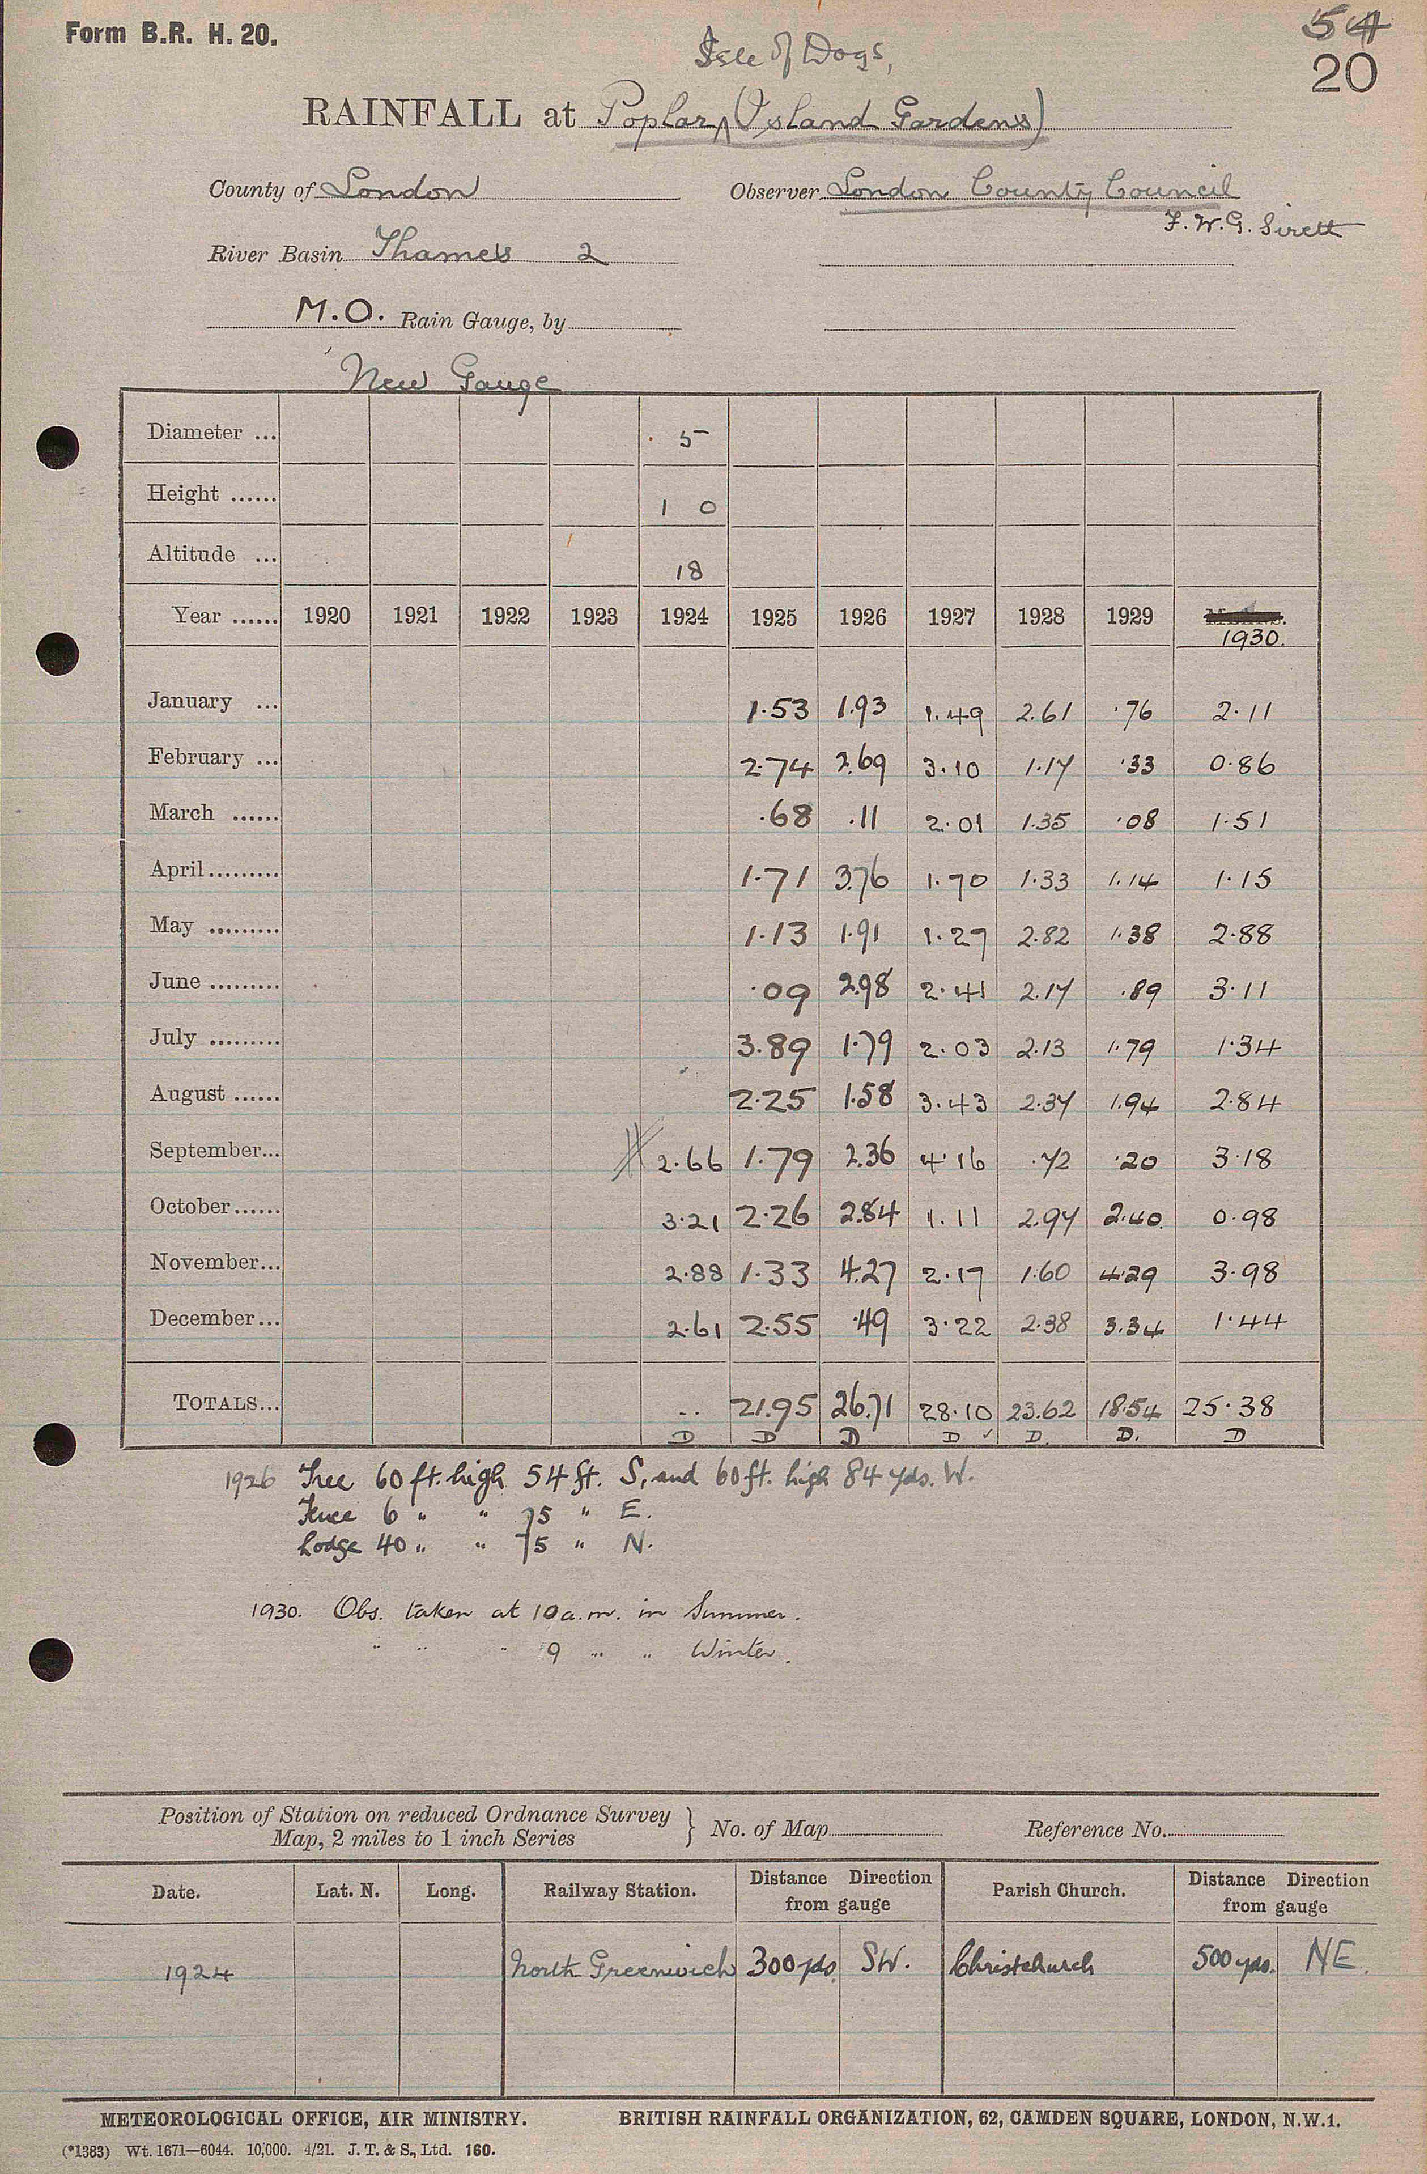 Form B.R. H. 20.
54
20
Isle of Dogs,
RAINFALL at Poplar ∧ (Island Gardens)
County of London
Observer London County Council
F.W.G. Sirett
River Basin Thames 2
M.O. Rain Gauge, by
New Gauge
Diameter ... 5
Height ...... 1 0
Altitude ... 18
Year ...... 1920 1921 1922 1923 1924 1925 1926 1927 1928 1929 1930.
January ... 1.53 1.93 1.49 2.61 .76 2.11
February ... 2.74 2.69 3.10 1.17 .33 0.86
March ...... .68 .11 2.01 1.35 .08 1.51
April ......... 1.71 3.76 1.70 1.33 1.14 1.15
May ......... 1.13 1.91 1.27 2.82 1.38 2.88
June ......... .09 2.98 2.41 2.17 .89 3.11
July ......... 3.89 1.79 2.03 2.13 1.79 1.34
August ...... 2.25 1.58 3.43 2.37 1.94 2.84
September... 2.66 1.79 2.36 4.16 .72 .20 3.18
October ...... 3.21 2.26 2.84 1.11 2.97 2.40 0.98
November... 2.88 1.33 4.27 2.17 1.60 4.29 3.98
December... 2.61 2.55 .49 3.22 2.38 3.34 1.44
TOTALS... .. 21.95 26.71 28.10 23.62 18.54 25.38
D D D D ✓ D. D. D
1926 Tree 60 ft. high 54 ft. S, and 60 ft. high 84 yds. W.
Fence 6 " " 75 " E.
Lodge 40 " " 75 " N.
1930. Obs. taken at 10 a.m. in Summer.
" " " 9 " " Winter.
Position of Station on reduced Ordnance Survey
Map, 2 miles to 1 inch Series } No. of Map Reference No.
Date. Lat. N. Long. Railway Station. Distance Direction from gauge Parish Church. Distance Direction from gauge
1924 North Greenwich 300 yds. SW. Christchurch 500 yds. NE.
METEOROLOGICAL OFFICE, AIR MINISTRY. BRITISH RAINFALL ORGANIZATION, 62, CAMDEN SQUARE, LONDON, N.W.1.
(*1383) Wt. 1671—6044. 10,000. 4/21. J. T. & S., Ltd. 160.